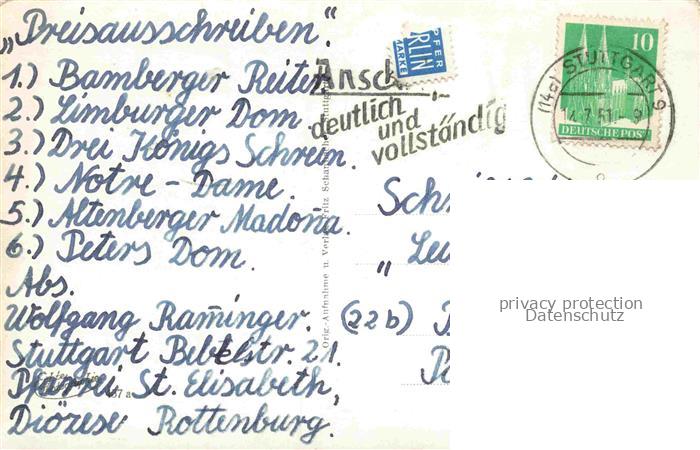 „Preisausschreiben.“
1.) Bamberger Reiter
2.) Limburger Dom
3.) Drei Königs Schrein.
4.) Notre-Dame.
5.) Altenberger Madon̄a.
6.) Peters Dom.
Abs.
Wolfgang Ram̄inger.
Stuttgart Bebelstr. 21.
Pfarrei St. Elisabeth,
Diözese Rottenburg.
deutlich
und
vollständig
BERLIN
MARKE
10
DEUTSCHE POST
(14a) STUTTGART 9
Orig.-Aufnahme u. Verlag Fritz
(22b)
privacy protection
Datenschutz